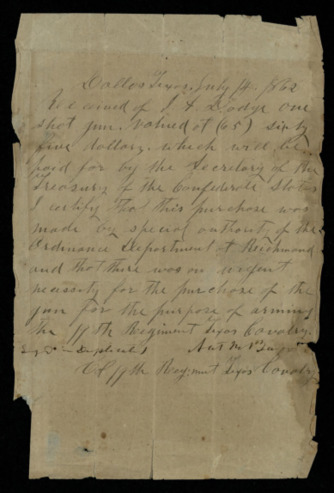 Dallas Texas. July 14. 1862
Received of J. A. Dodge one
shot gun. valued at (65) sixty
five dollars. which will be
paid for by the Secretary of the
Treasury of the Confederate States
I certify that this purchase was
made by special authority of the
Ordinance Department at Richmond
and that there was an urgent
necessity for the purchase of the
gun for the purpose of arming
the 19th Regiment Texas Cavalry.
Duplicate Nat M
19th Regiment Texas Cavalry